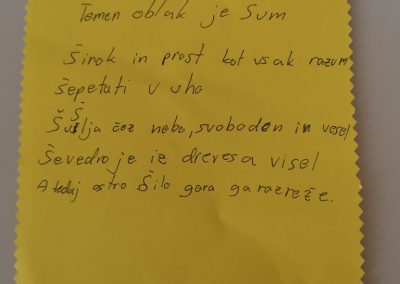 Temen oblak je šum
Širok in prost kot vsak razum
Šepetati v uho
Šušlja čez nebo, svoboden in vesel
Ševedno je iz drevesa visel
A tedaj ostro šilo gora ga razreže.